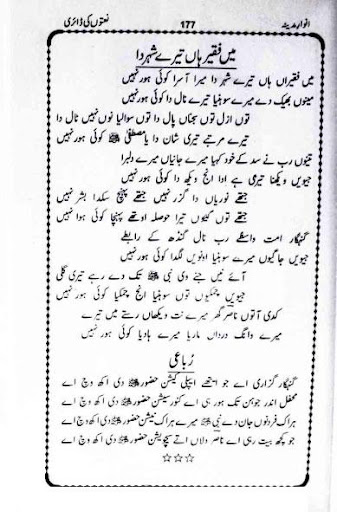 انوارِ مدینہ 177 نعتوں کی ڈائری
میں فقیر ہاں تیرے شہر دا
میں فقیراں ہاں تیرے شہر دا میرا آسرا کوئی ہور نہیں
مینوں بھیک دے میرے سوہنیا تیرے نال دا کوئی ہور نہیں
توں ازل توں سجناں پال دا توں سوالیا نوں نہیں ٹال دا
تیرے مرتبے تیری شان دا یا مصطفیٰ ﷺ کوئی ہور نہیں
تینوں رب نے سد کے خود کہیا میرے جانیاں میرے دلبرا
جیویں ویکھنا تیری ہے ادا انج ویکھ دا کوئی ہور نہیں
جتھے نوریاں دا گزر نہیں جتھے پہنچ سکدا بشر نہیں
جتھے توں گیوں تیرا حوصلہ اوتھے پہنچا کوئی ہوا نہیں
گنہگار امت واسطے رب نال گنڈھ کے رابطے
جیویں جاگیوں میرے سوہنیا اونویں لگدا کوئی ہور نہیں
آئے نیں جنے وی نبی ﷺ تک دے رہے تیری گلی
جیویں چمکیوں توں سوہنیا انج چمکیا کوئی ہور نہیں
کدی آ توں ناصر گھر میرے نت ویکھاں رستے میں تیرے
میرے وانگ درداں ماریا میرے ہادیا کوئی ہور نہیں
رُباعی
گنہگار گزاری اے جو ایتھے اپیلی کیشن حضور ﷺ دی اکھ وچ اے
محفل اندر جوبن تک ہور ہی اے کنورسیشن حضور ﷺ دی اکھ وچ اے
ہر اک فرد نوں جان دے نبی ﷺ میرے ہر اک نیشن حضور ﷺ دی اکھ وچ اے
جو کچھ بیت رہی اے ناصر دلاں اتے سچوایشن حضور ﷺ دی اکھ وچ اے
☆☆☆